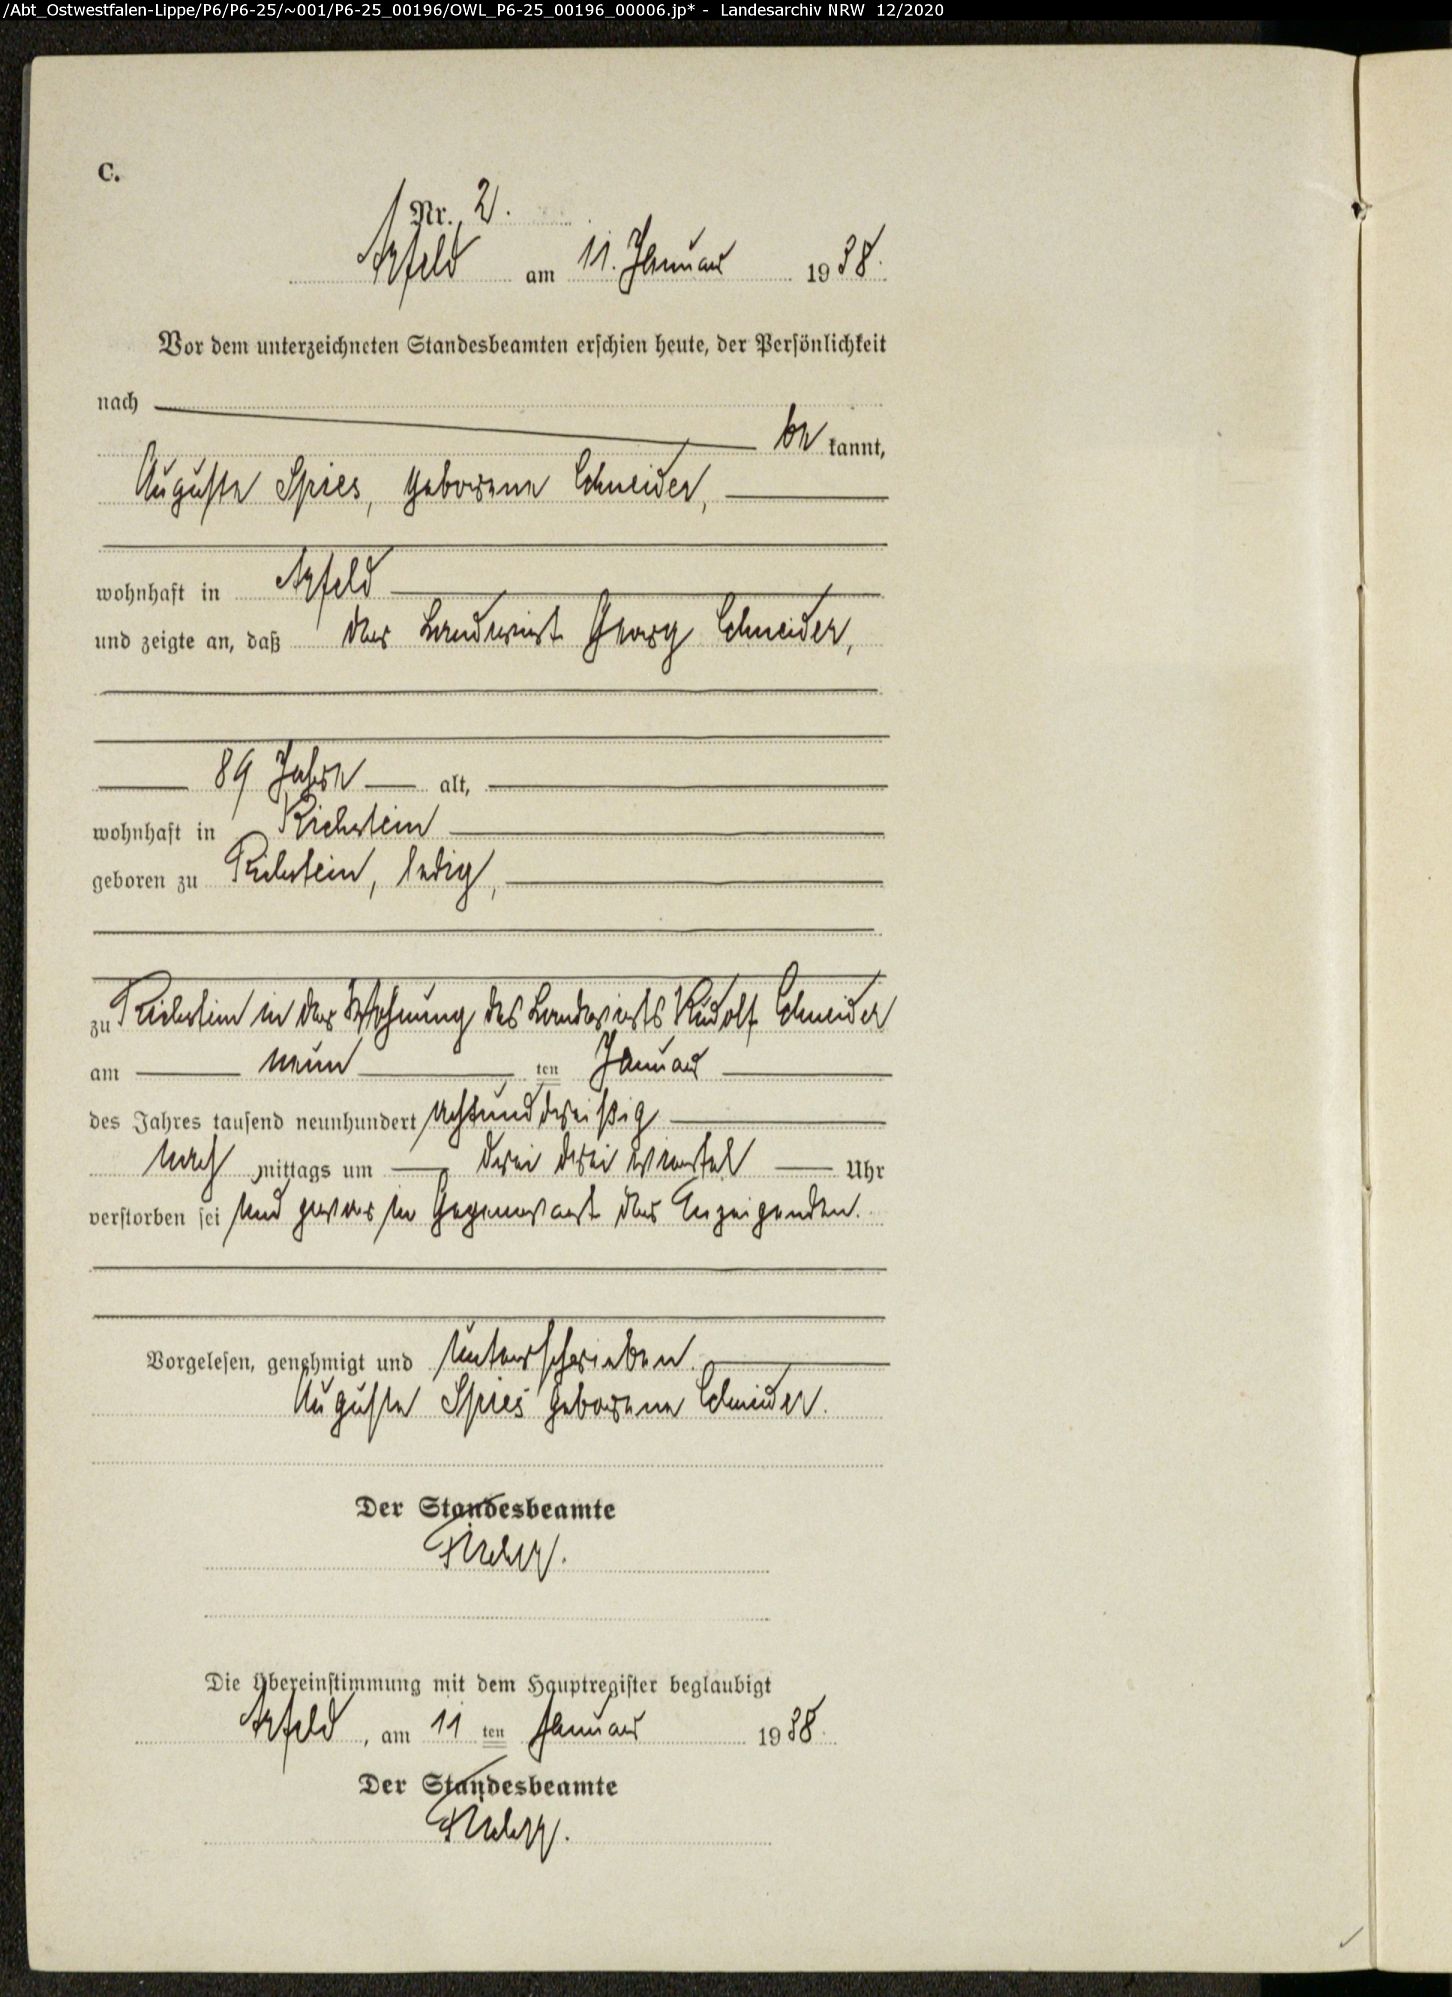 /Abt_Ostwestfalen-Lippe/P6/P6-25/~001/P6-25_00196/OWL_P6-25_00196_00006.jp* - Landesarchiv NRW 12/2020
C.
Nr. 2.
Arfeld am 11. Januar 1938.
Vor dem unterzeichneten Standesbeamten erschien heute, der Persönlichkeit
nach
be kannt,
Auguste Spies, geborene Schneider,
wohnhaft in Arfeld
und zeigte an, daß der Landwirt Georg Schneider,
89 Jahre alt,
wohnhaft in Richstein
geboren zu Richstein, ledig,
zu Richstein in der Wohnung des Landwirts Rudolf Schneider
am neun ten Januar
des Jahres tausend neunhundert achtunddreißig
nach mittags um drei drei viertel Uhr
verstorben sei und zwar in Gegenwart der Anzeigenden.
Vorgelesen, genehmigt und unterschrieben.
Auguste Spies geborene Schneider.
Der Standesbeamte
Die Übereinstimmung mit dem Hauptregister beglaubigt
Arfeld, am 11 ten Januar 1938.
Der Standesbeamte